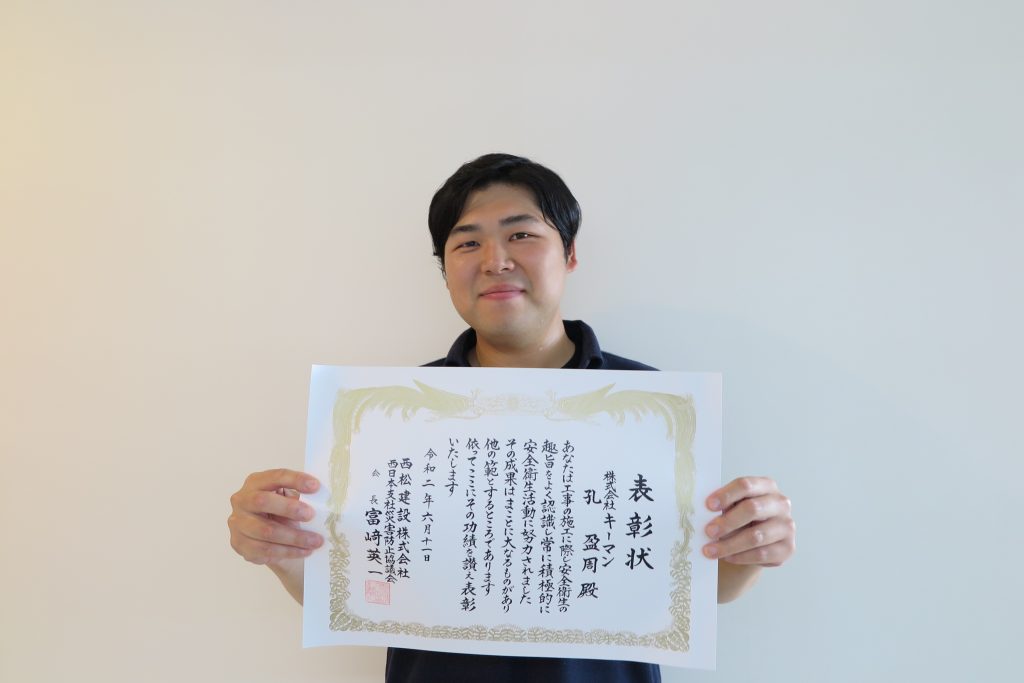 表彰状
株式会社キーマン
孔盈周殿
あなたは工事の施工に際し安全衛生の
趣旨をよく認識し常に積極的に
安全衛生活動に努力されました
その成果はまことに大なるものがあり
他の範とするところであります
依ってここにその功績を讃え表彰
いたします
令和二年六月十一日
西松建設株式会社
西日本支社災害防止協議会
会長富﨑英一